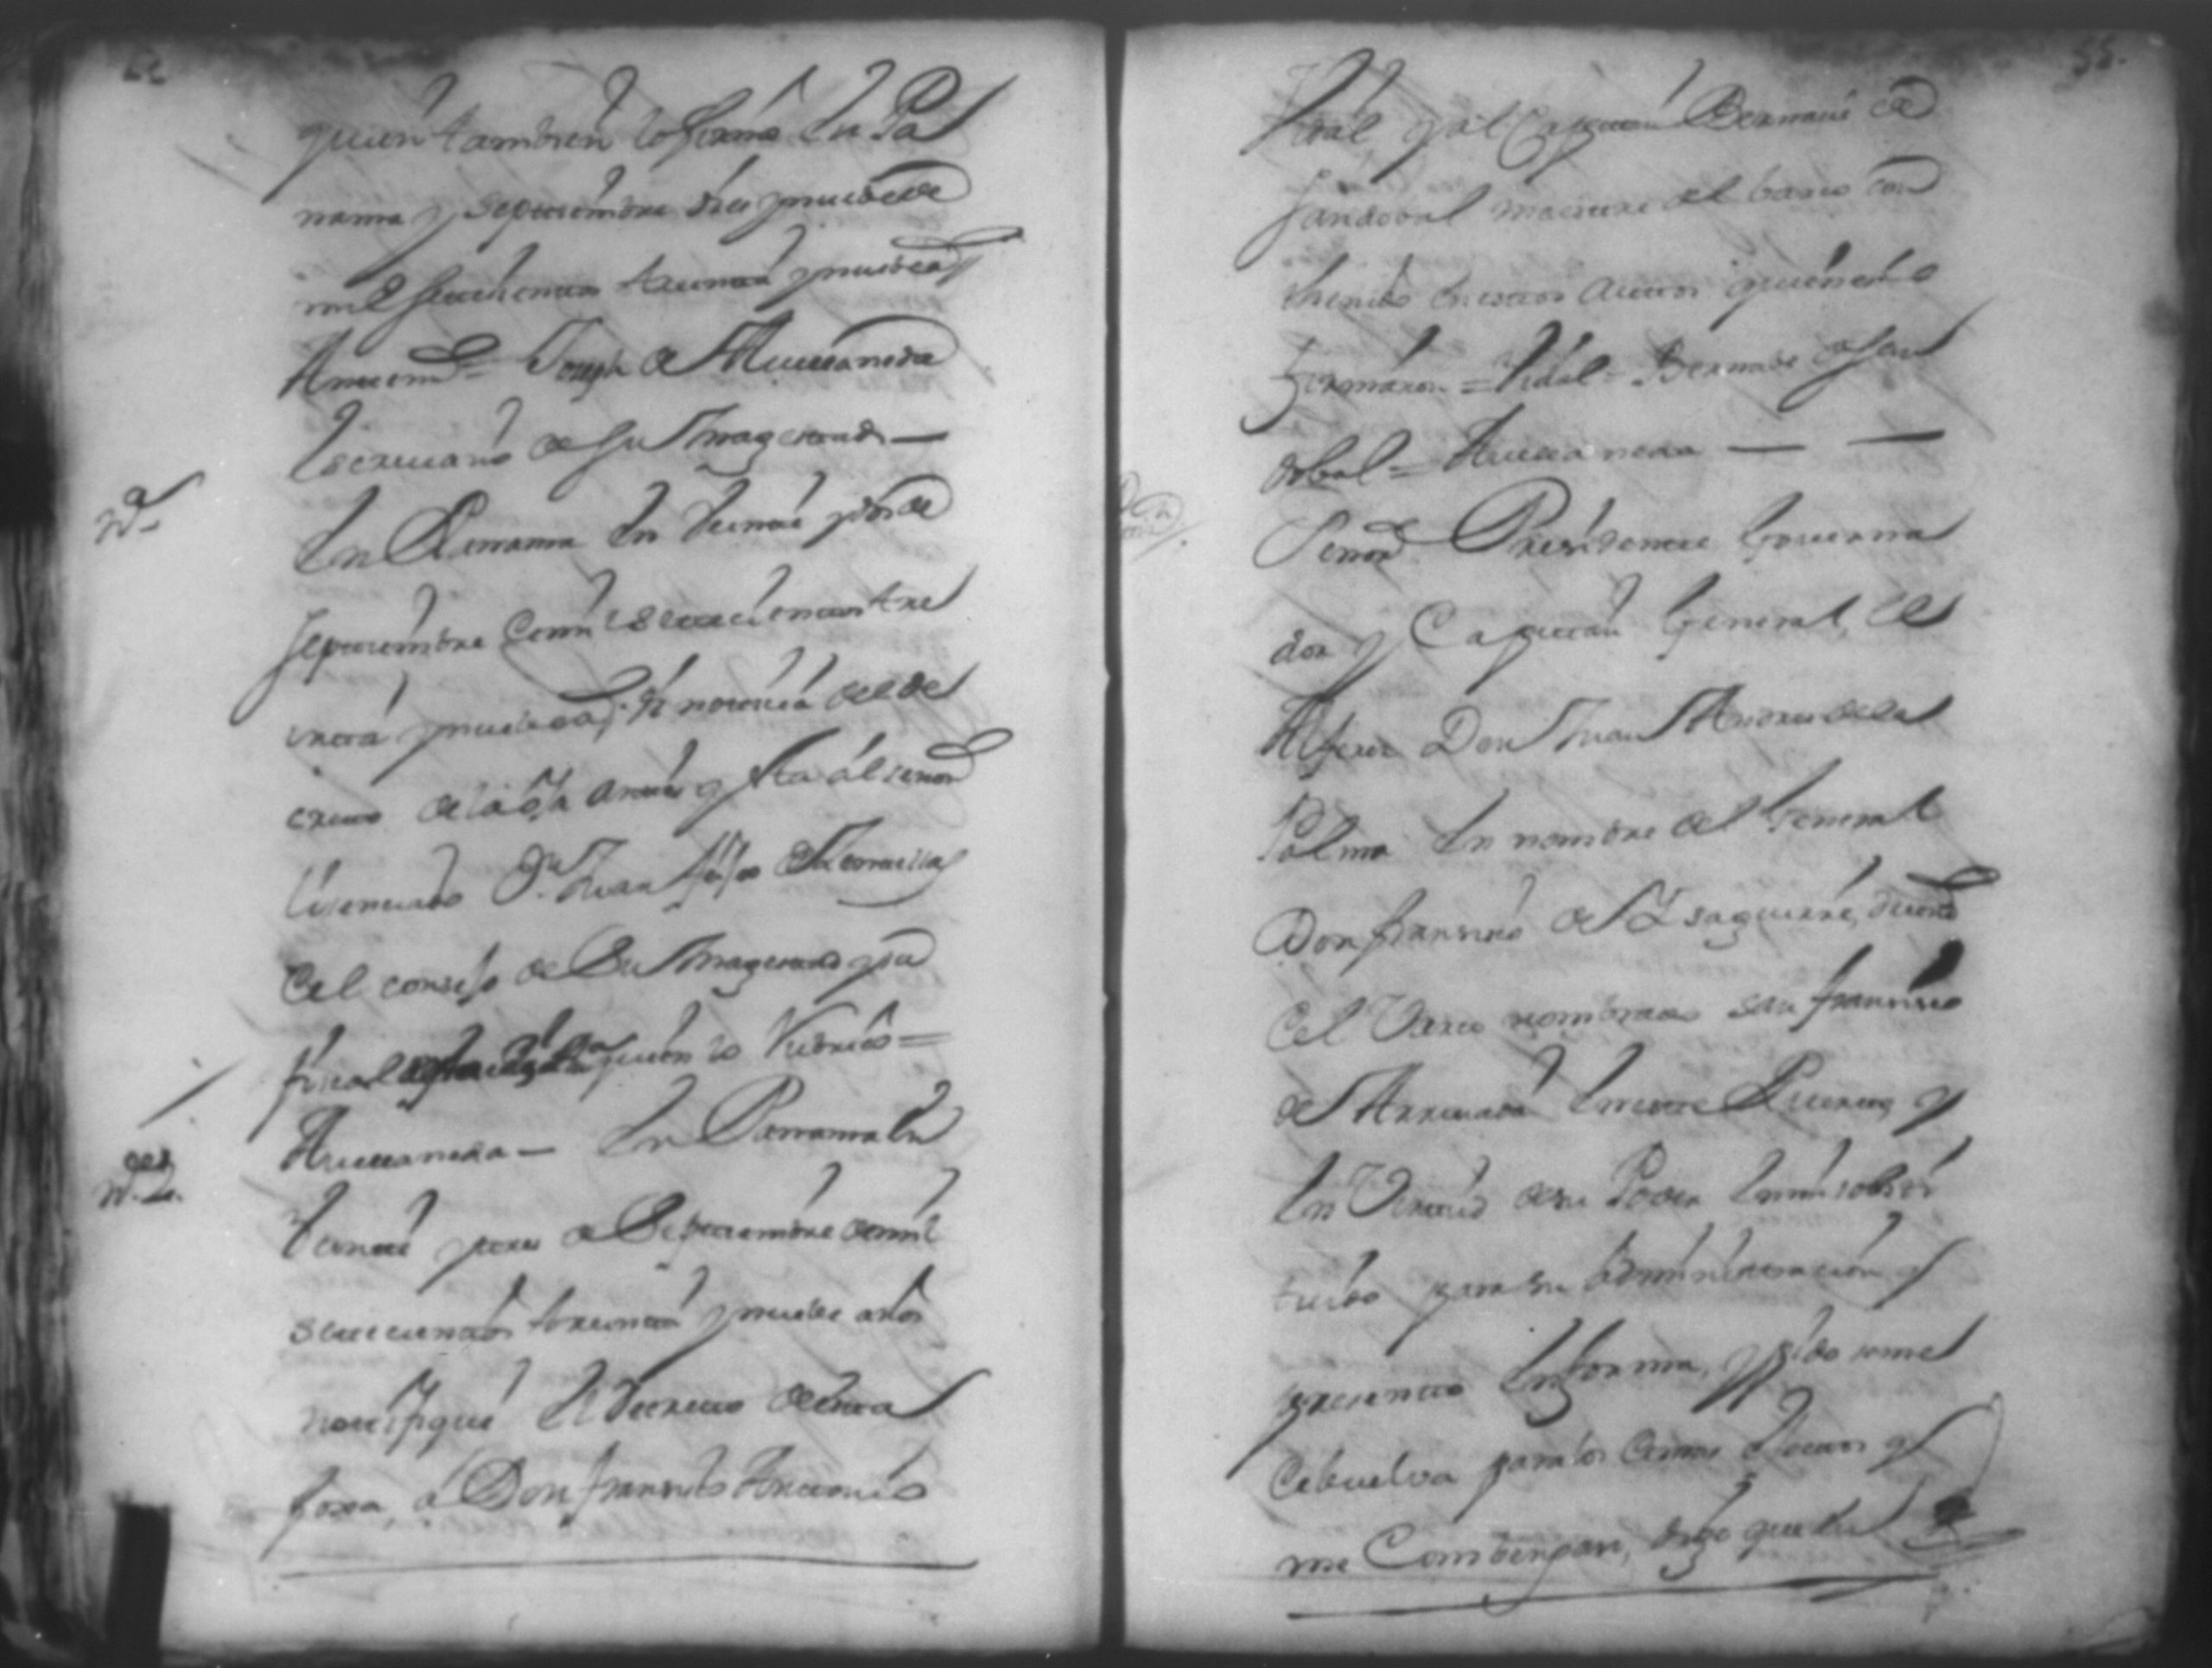 quien tambien lo firmó En Pa
nama y septiembre diez y nueve de
mil setecientos treinta y nueve as
Antemi = Joseph de Avellaneda
Escrivano de Su Magestad —
En Panama En Veinte y dos de
septiembre de mil setecientos tre
inta y nueve as. hi notorio el de
creto de la oja antes de esta al señor
lisenciado Dn. Juan
del consejo de Su Magestad y su
fiscal quien lo Rubricó =
Avellaneda — En Panama En
Veinte y tres de Septiembre de mil
setecientos treinta y nueve años
notifiqué El Decreto de esta
foxa, á Don fransisco Antonio
55.
Vidal y al Capitan Bernave de
Sandobal maestre del barco con
thenido en estos autos quienes lo
firmaron = Vidal = Bernave de San
dobal = Avellaneda — —
Señor Presidente Governa
dor y Capitan General, el
Alferes Don Juan Andres de la
Palma En nombre del General
Don fransisco de Ysaguirre, dueño
del Varco nombrado San fransisco
de Arrivada En este Puerto, y
En Virtud de su Poder Enmi sobsti
tuido para su administracion y
presento En forma, y pido se me
debuelva para los demas efectos q
me Combengan, digo que En